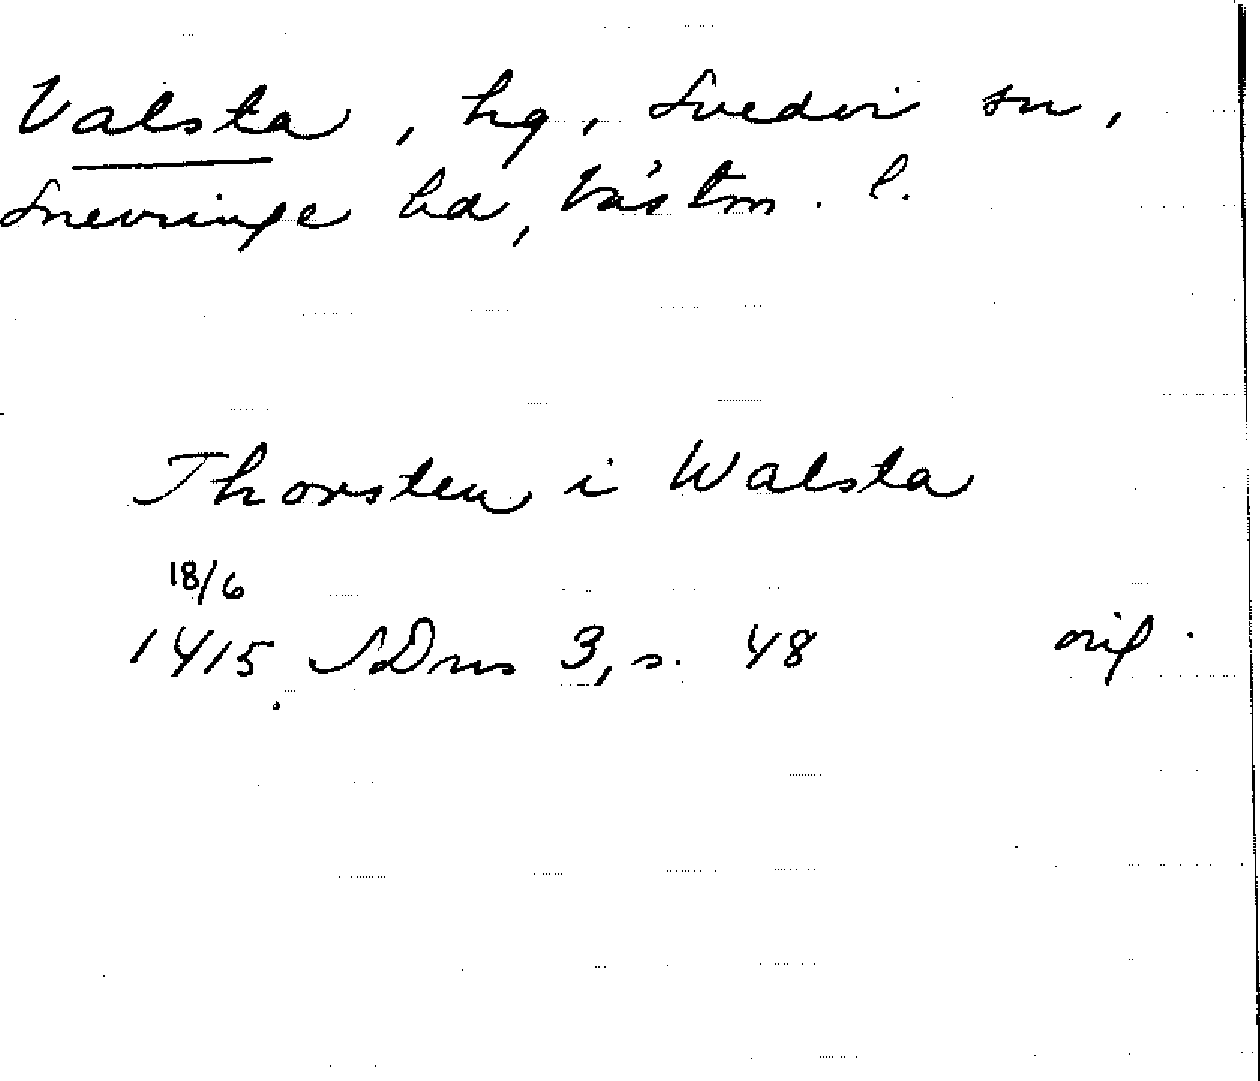 Valsta, hg, Svedvi sn,
Snevringe hd, Västm. l.
Thorsten i Walsta
18/6
1415 SDns 3, s. 48 orig.